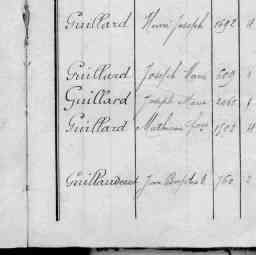 Guillard Henri Joseph 1692
Guillard Joseph Marie 609
Guillard Joseph Marie
Guillard Mathurin 1502
Guillaudeux Jean Baptiste 760 2